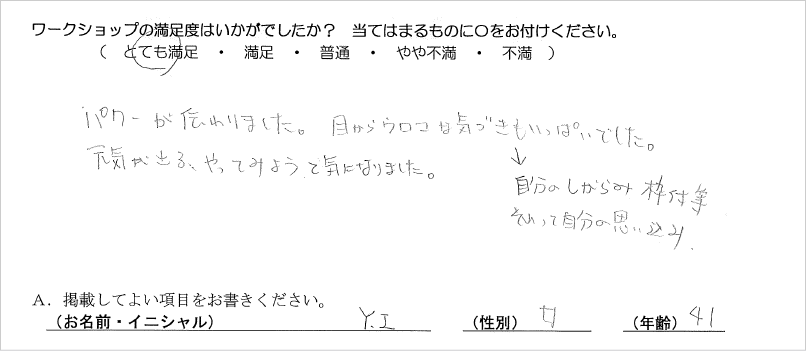 ワークショップの満足度はいかがでしたか？　当てはまるものに〇をお付けください。
（　とても満足　・　満足　・　普通　・　やや不満　・　不満　）
パワーが伝わりました。目からウロコな気づきもいっぱいでした。
元気が出る、やってみようって気になりました。
↓
自分のしがらみ 枠付等
それって自分の思い込み。
A．掲載してよい項目をお書きください。
（お名前・イニシャル）　Y.I　（性別）　女　（年齢）　41